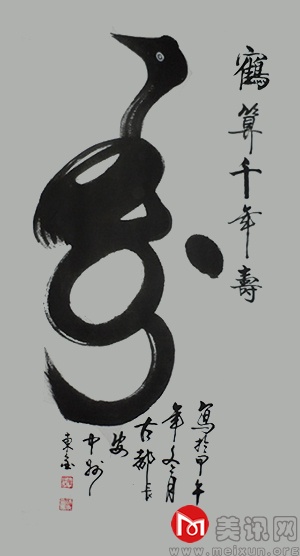 鶴算千年壽
寿
寫於甲午
年冬月
古都長
安
中州
東
美讯网
www.meixun.org